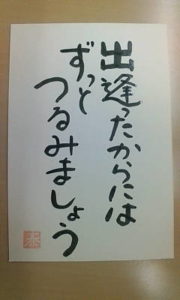 出逢ったからには
ずっと
つるみましょう